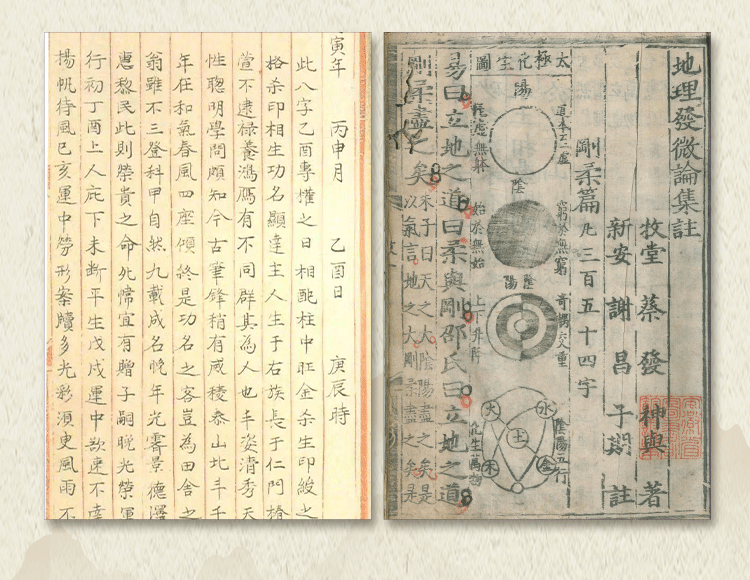 地理發微論集註
牧堂蔡發神與著
新安謝昌子期註
剛柔篇凡三百五十四字
太極化生圖
陽
耗虛無躰
陰
窮於無窮
始於無始
陰陽
水
火
土
金
木
陰陽五行
化生萬物
易曰立地之道曰柔與剛邵氏曰立地之道
剛柔盡之矣
朱子曰天之大陰陽盡之矣是
以氣言地之大剛柔盡之矣是
寅年 丙申月 乙酉日 庚辰時
此八字乙酉專權之日相配柱中旺金杀生印綬之
格杀印相生功名顯達主人生于右族長于仁門椿
萱不逮祿養鴻鴈有不同群其為人也丰姿清秀天
性聰明學問頗知今古筆鋒稍有威稜泰山北斗千
年在和氣春風四座傾終是功名之客豈為田舍之
翁雖不三登科甲自然九載成名晚年光霽景德澤
惠黎民此則榮貴之命死帰宜有贈子嗣晚光榮運
行初丁酉上人庇下未斷平生戊戌運中欲速不達
揚帆待風己亥運中勞形案牘多光彩須更風雨不